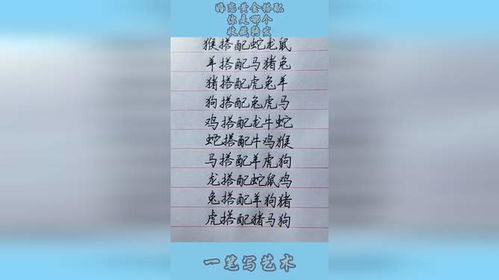 婚恋黄金搭配
你是哪个
收藏转发
猴搭配蛇龙鼠
羊搭配马猪兔
猪搭配虎兔羊
狗搭配兔虎马
鸡搭配龙牛蛇
蛇搭配牛鸡猴
马搭配羊虎狗
龙搭配蛇鼠鸡
兔搭配羊狗猪
虎搭配猪马狗
一笔写艺术